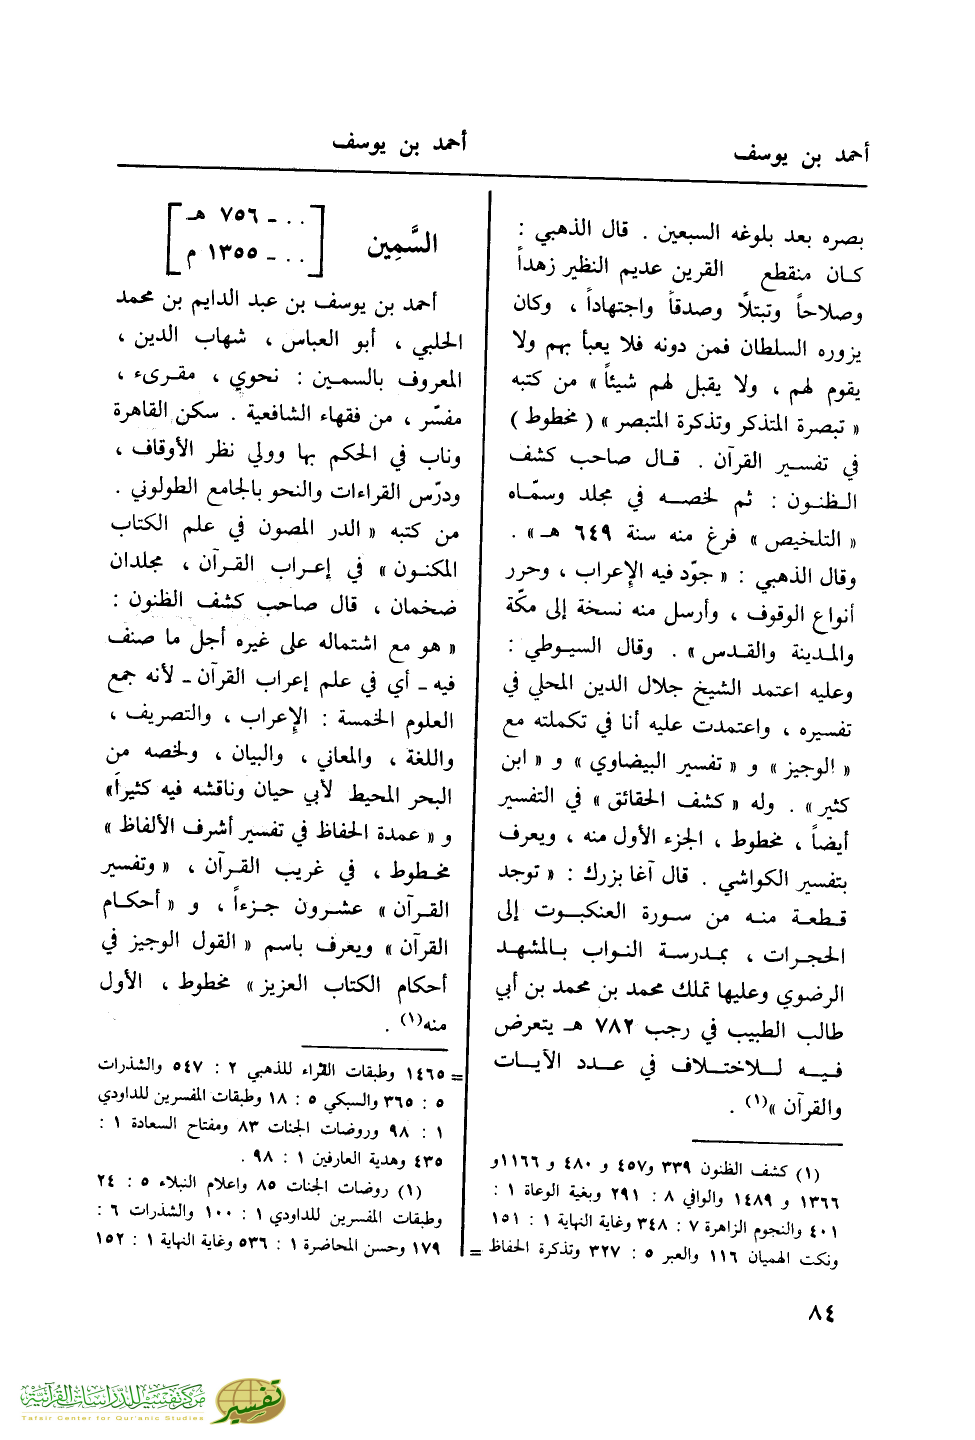 أحمد بن يوسف
أحمد بن يوسف
بصره بعد بلوغه السبعين . قال الذهبي :
كان منقطع القرين عديم النظير زهداً
وصلاحاً وتبتلاً وصدقاً واجتهاداً ، وكان
يزوره السلطان فمن دونه فلا يعبأ بهم ولا
يقوم لهم ، ولا يقبل لهم شيئاً » من كتبه
« تبصرة المتذكر وتذكرة المتبصر » ( مخطوط )
في تفسير القرآن . قال صاحب كشف
الظنون : ثم لخصه في مجلد وسمّاه
« التلخيص » فرغ منه سنة ٦٤٩ هـ » .
وقال الذهبي : « جوّد فيه الإعراب ، وحرر
أنواع الوقوف ، وأرسل منه نسخة إلى مكّة
والمدينة والقدس » . وقال السيوطي :
وعليه اعتمد الشيخ جلال الدين المحلي في
تفسيره ، واعتمدت عليه أنا في تكملته مع
« الوجيز » و « تفسير البيضاوي » و « ابن
كثير » . وله « كشف الحقائق » في التفسير
أيضاً ، مخطوط ، الجزء الأول منه ، ويعرف
بتفسير الكواشي . قال آغا بزرك : « توجد
قطعة منه من سورة العنكبوت إلى
الحجرات ، بمدرسة النواب بالمشهد
الرضوي وعليها تملك محمد بن محمد بن أبي
طالب الطبيب في رجب ٧٨٢ هـ يتعرض
فيه للاختلاف في عدد الآيات
والقرآن »(١) .
(١) كشف الظنون ٣٣٩ و٤٥٧ و ٤٨٠ و ١١٦٦و
١٣٦٦ و ١٤٨٩ والوافي ٨ : ٢٩١ وبغية الوعاة ١ :
٤٠١ والنجوم الزاهرة ٧ : ٣٤٨ وغاية النهاية ١ : ١٥١
ونكت الهميان ١١٦ والعبر ٥ : ٣٢٧ وتذكرة الحفاظ =
السَّمِين
[ . . ـ ٧٥٦ هـ
. . ـ ١٣٥٥ م ]
أحمد بن يوسف بن عبد الدايم بن محمد
الحلبي ، أبو العباس ، شهاب الدين ،
المعروف بالسمين : نحوي ، مقرىء ،
مفسّر ، من فقهاء الشافعية . سكن القاهرة
وناب في الحكم بها وولي نظر الأوقاف ،
ودرّس القراءات والنحو بالجامع الطولوني .
من كتبه « الدر المصون في علم الكتاب
المكنون » في إعراب القرآن ، مجلدان
ضخمان ، قال صاحب كشف الظنون :
« هو مع اشتماله على غيره أجل ما صنف
فيه ـ أي في علم إعراب القرآن ـ لأنه جمع
العلوم الخمسة : الإعراب ، والتصريف ،
واللغة ، والمعاني ، والبيان ، ولخصه من
البحر المحيط لأبي حيان وناقشه فيه كثيراً»
و « عمدة الحفاظ في تفسير أشرف الألفاظ »
مخطوط ، في غريب القرآن ، « وتفسير
القرآن » عشرون جزءاً ، و « أحكام
القرآن » ويعرف باسم « القول الوجيز في
أحكام الكتاب العزيز » مخطوط ، الأول
منه(١) .
= ١٤٦٥ وطبقات القراء للذهبي ٢ : ٥٤٧ والشذرات
٥ : ٣٦٥ والسبكي ٥ : ١٨ وطبقات المفسرين للداودي
١ : ٩٨ وروضات الجنات ٨٣ ومفتاح السعادة ١ :
٤٣٥ وهدية العارفين ١ : ٩٨ .
(١) روضات الجنات ٨٥ واعلام النبلاء ٥ : ٢٤
وطبقات المفسرين للداودي ١ : ١٠٠ والشذرات ٦ :
١٧٩ وحسن المحاضرة ١ : ٥٣٦ وغاية النهاية ١ : ١٥٢
٨٤
مركز تفسير للدراسات القرآنية
Tafsir Center for Qur'anic Studies
تفسير